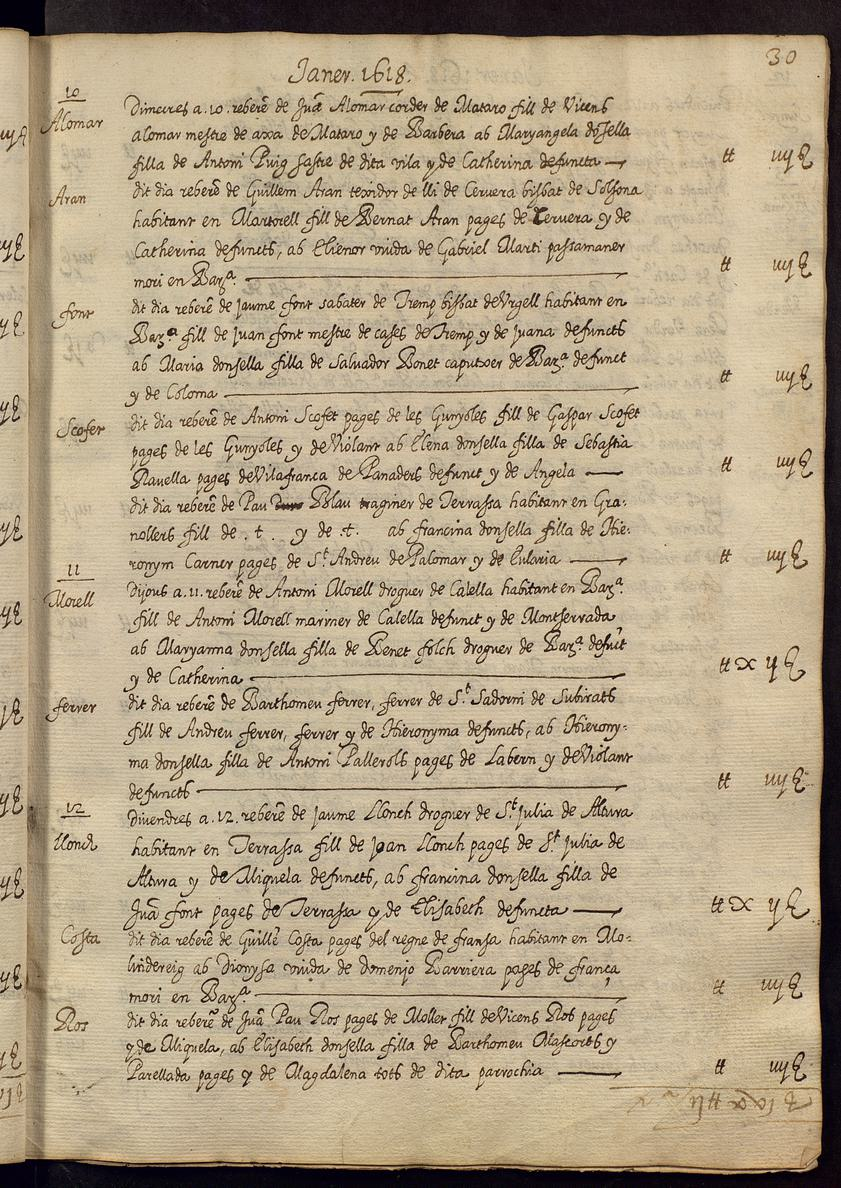 30
Janer. 1618.
10
Alomar
Dimecres a .10. reberē de Juā Alomar corder de Mataro fill de Vicens
alomar mestre de axa de Mataro y de Barbera ab Maryangela dōsella
filla de Antoni Puig sastre de dita vila y de Catherina defuncta
tt iiij ß
Aran
dit dia reberē de Guillem Aran texidor de lli de Cervera bisbat de Solsona
habitant en Martorell fill de Bernat Aran pages de Cervera y de
Catherina defuncts, ab Elienor viuda de Gabriel Marti passamaner
mori en Barᵃ.
tt iiij ß
font
dit dia reberē de Jaume font sabater de Tremp bisbat de Vrgell habitant en
Barᵃ fill de Juan font mestre de cases de Tremp y de Juana defuncts
ab Maria donsella filla de Salvador Bonet caputxer de Barᵃ. defunct
y de Coloma
tt iiij ß
Scofet
dit dia reberē de Antoni Scofet pages de les Gunyoles fill de Gaspar Scofet
pages de les Gunyoles y de Violant ab Elena donsella filla de Sebastia
Ravella pages de Vilafranca de Panades defunct y de Angela
tt iiij ß
dit dia reberē de Pau Blau traginer de Terrassa habitant en Gra:
nollers fill de .t. y de .t. ab francina donsella filla de Hie:
ronym Carner pages de Sᵗ Andreu de Palomar y de Eularia
tt iiij ß
11
Morell
Dijous a .11. reberē de Antoni Morell droguer de Calella habitant en Barᵃ.
fill de Antoni Morell mariner de Calella defunct y de Montserrada,
ab Maryanna donsella filla de Benet folch droguer de Barᵃ. defūct
y de Catherina
tt x ij ß
ferrer
dit dia reberē de Barthomeu ferrer, ferrer de Sᵗ. Sadorni de Subirats
fill de Andreu ferrer, ferrer y de Hieronyma defuncts, ab Hierony-
ma donsella filla de Antoni Pallerols pages de Labern y de Violant
defuncts
tt iiij ß
12
Llonch
Divendres a .12. reberē de Jaume Llonch droguer de Sᵗ. Julia de Altura
habitant en Terrassa fill de Joan Llonch pages de Sᵗ. Julia de
Altura y de Miquela defuncts, ab francina donsella filla de
Juā font pages de Terrassa y de Elisabeth defuncta
tt x ij ß
Costa
dit dia reberē de Guillē Costa pages del regne de fransa habitant en Mo:
lindereig ab Dionysa viuda de domenjo Barriera pages de frança
mori en Barᵃ.
tt iiij ß
Ros
dit dia reberē de Juā Pau Ros pages de Mollet fill de Vicens Ros pages
y de Miquela, ab Elisabeth donsella filla de Barthomeu Mascorts y
Parellada pages y de Magdalena tots de dita parrochia
tt iiij ß